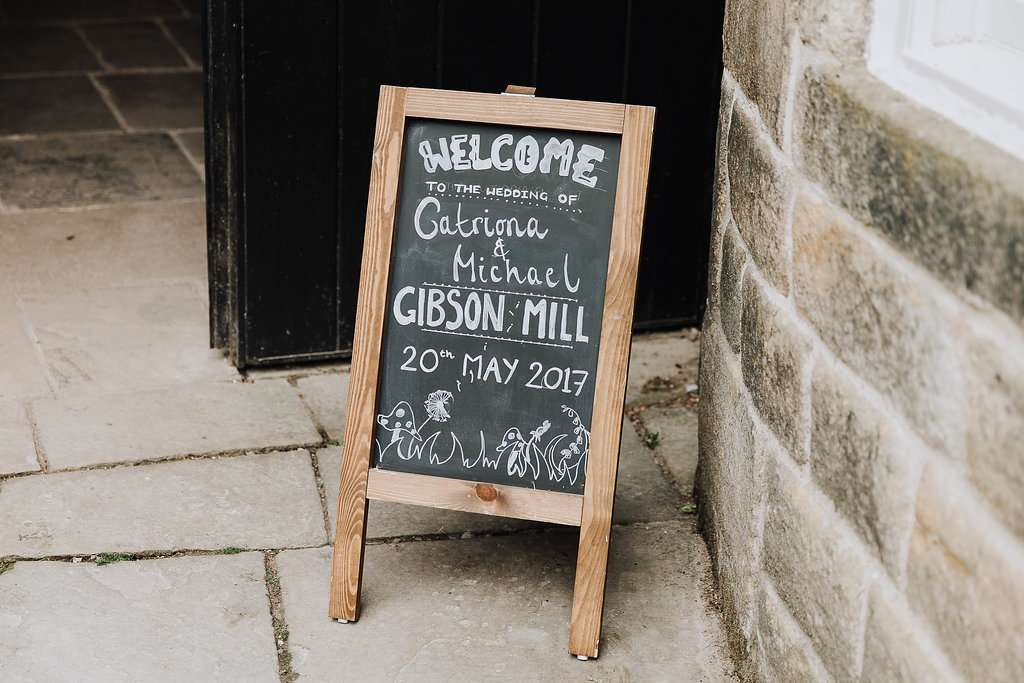 WELCOME
TO THE WEDDING OF
Catriona
&
Michael
GIBSON MILL
20th MAY 2017